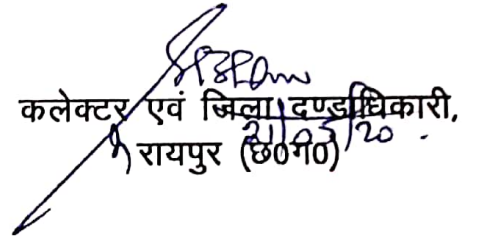 कलेक्टर एवं जिला दण्डाधिकारी,
21/05/20
रायपुर (छ0ग0)